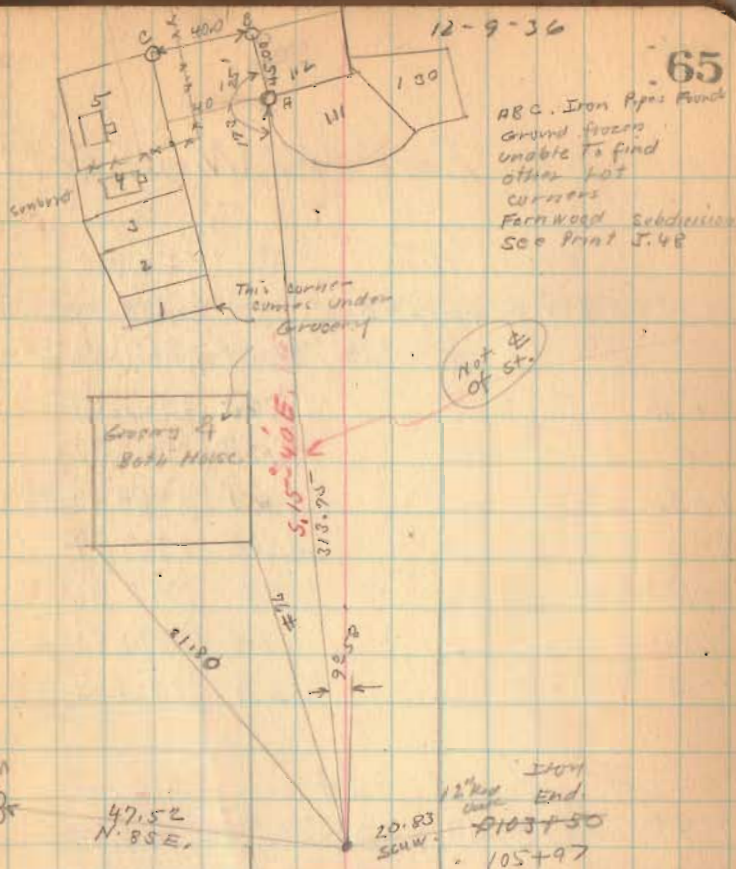 12-9-36
65
ABC. Iron Pipes Found
Ground frozen
unable To find
other Lot
corners
Fernwood Subdivision
See Print J.48
C
40.0
B
45.00
125'
40
A
112
111
130
5
4
3
2
1
This corner
comes under
Grocery
Not ℄
of St.
Grocery &
Bath House.
S.15°-40'E.
313.75
76
81.80
9°52
47.52
N.85E.
20.83
12"
Iron
End
103+50
105+97